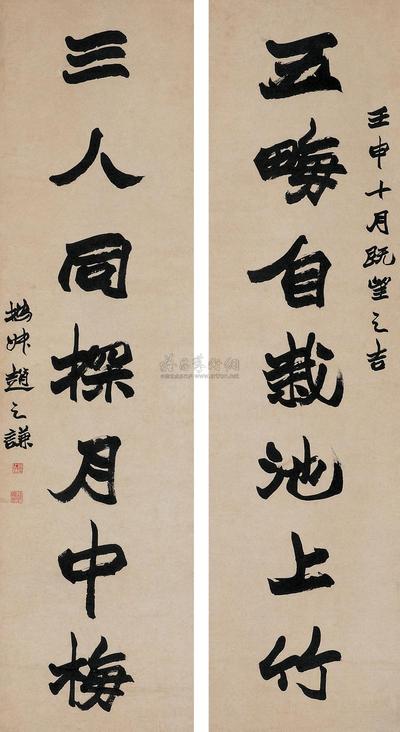 壬申十月既望之吉
五畮自栽池上竹
三人同探月中梅
撝叔趙之謙
www.artron.net